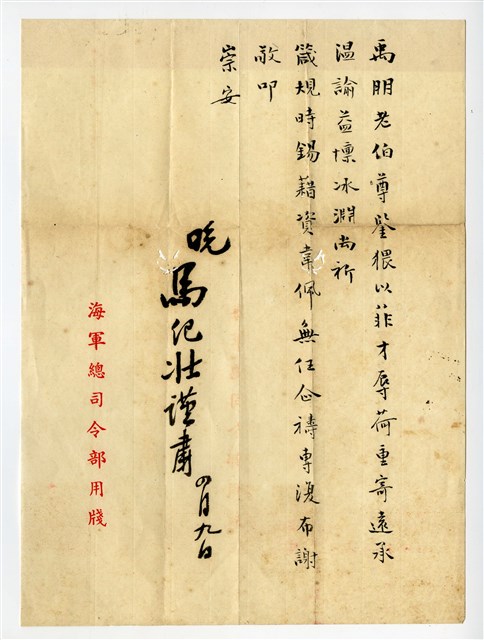 禹朋老伯尊鑒猥以菲才辱荷重寄遠承
溫諭益懍冰淵尚祈
箴規時錫藉資韋佩無任企禱專復布謝
敬叩
崇安
晚馬紀壯謹肅四月九日
海軍總司令部用牋